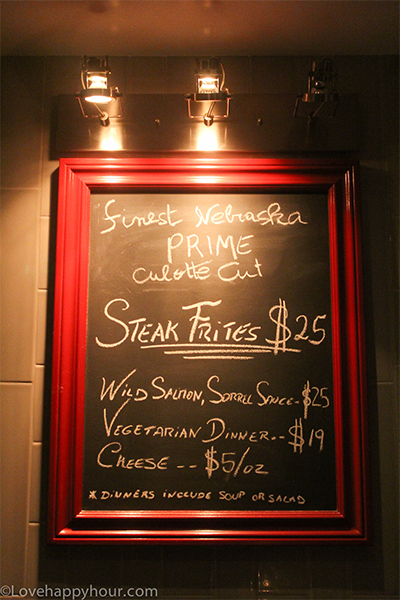 Finest Nebraska
PRIME
Culotte Cut
STEAK FRITES $25
WILD SALMON, SORREL SAUCE- $25
VEGETARIAN DINNER-- $19
CHEESE -- $5/OZ
* DINNERS INCLUDE SOUP OR SALAD
©Lovehappyhour.com